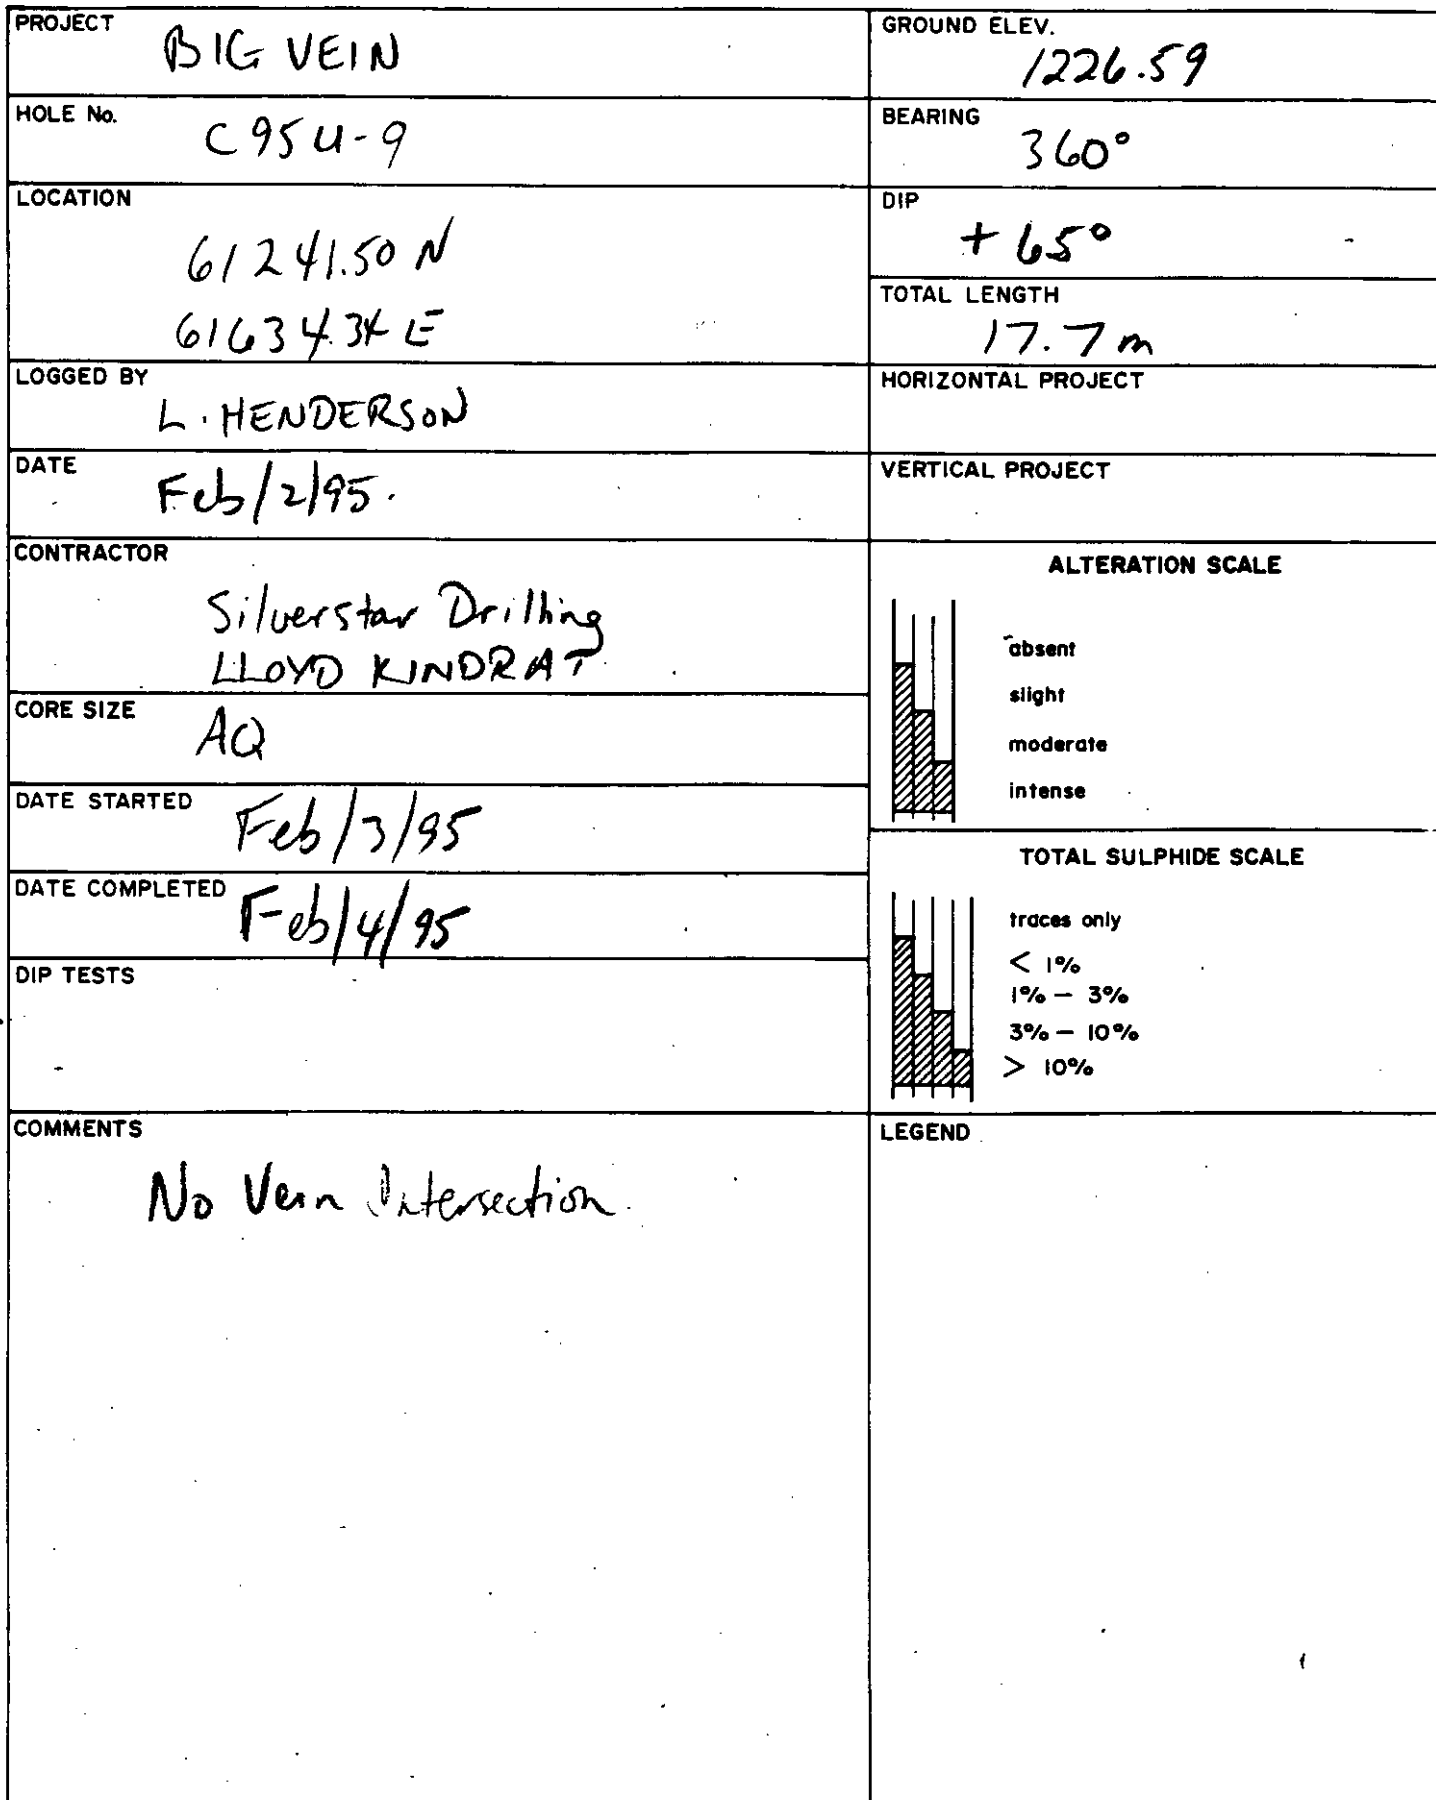 PROJECT
BIG VEIN
HOLE No.
C95U-9
LOCATION
61241.50 N
61634.34 E
LOGGED BY
L. HENDERSON
DATE
Feb/2/95.
CONTRACTOR
Silverstar Drilling
LLOYD KINDRAT
CORE SIZE
AQ
DATE STARTED
Feb/3/95
DATE COMPLETED
Feb/4/95
DIP TESTS
COMMENTS
No Vein Intersection
GROUND ELEV.
1226.59
BEARING
360°
DIP
+65°
TOTAL LENGTH
17.7 m
HORIZONTAL PROJECT
VERTICAL PROJECT
ALTERATION SCALE
absent
slight
moderate
intense
TOTAL SULPHIDE SCALE
traces only
< 1%
1% – 3%
3% – 10%
> 10%
LEGEND